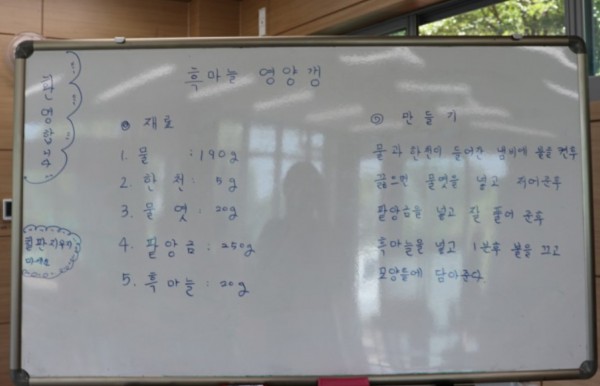 흑마늘 영양갱
재료
1. 물 : 190g
2. 한천 : 5g
3. 물엿 : 20g
4. 팥앙금 : 250g
5. 흑마늘 : 20g
만들기
물과 한천이 들어간 냄비에 불을 켠후
끓으면 물엿을 넣고 저어준후
팥앙금을 넣고 잘 풀어 준후
흑마늘을 넣고 1분후 불을 끄고
모양틀에 담아준다
칠판 지우지
마세요